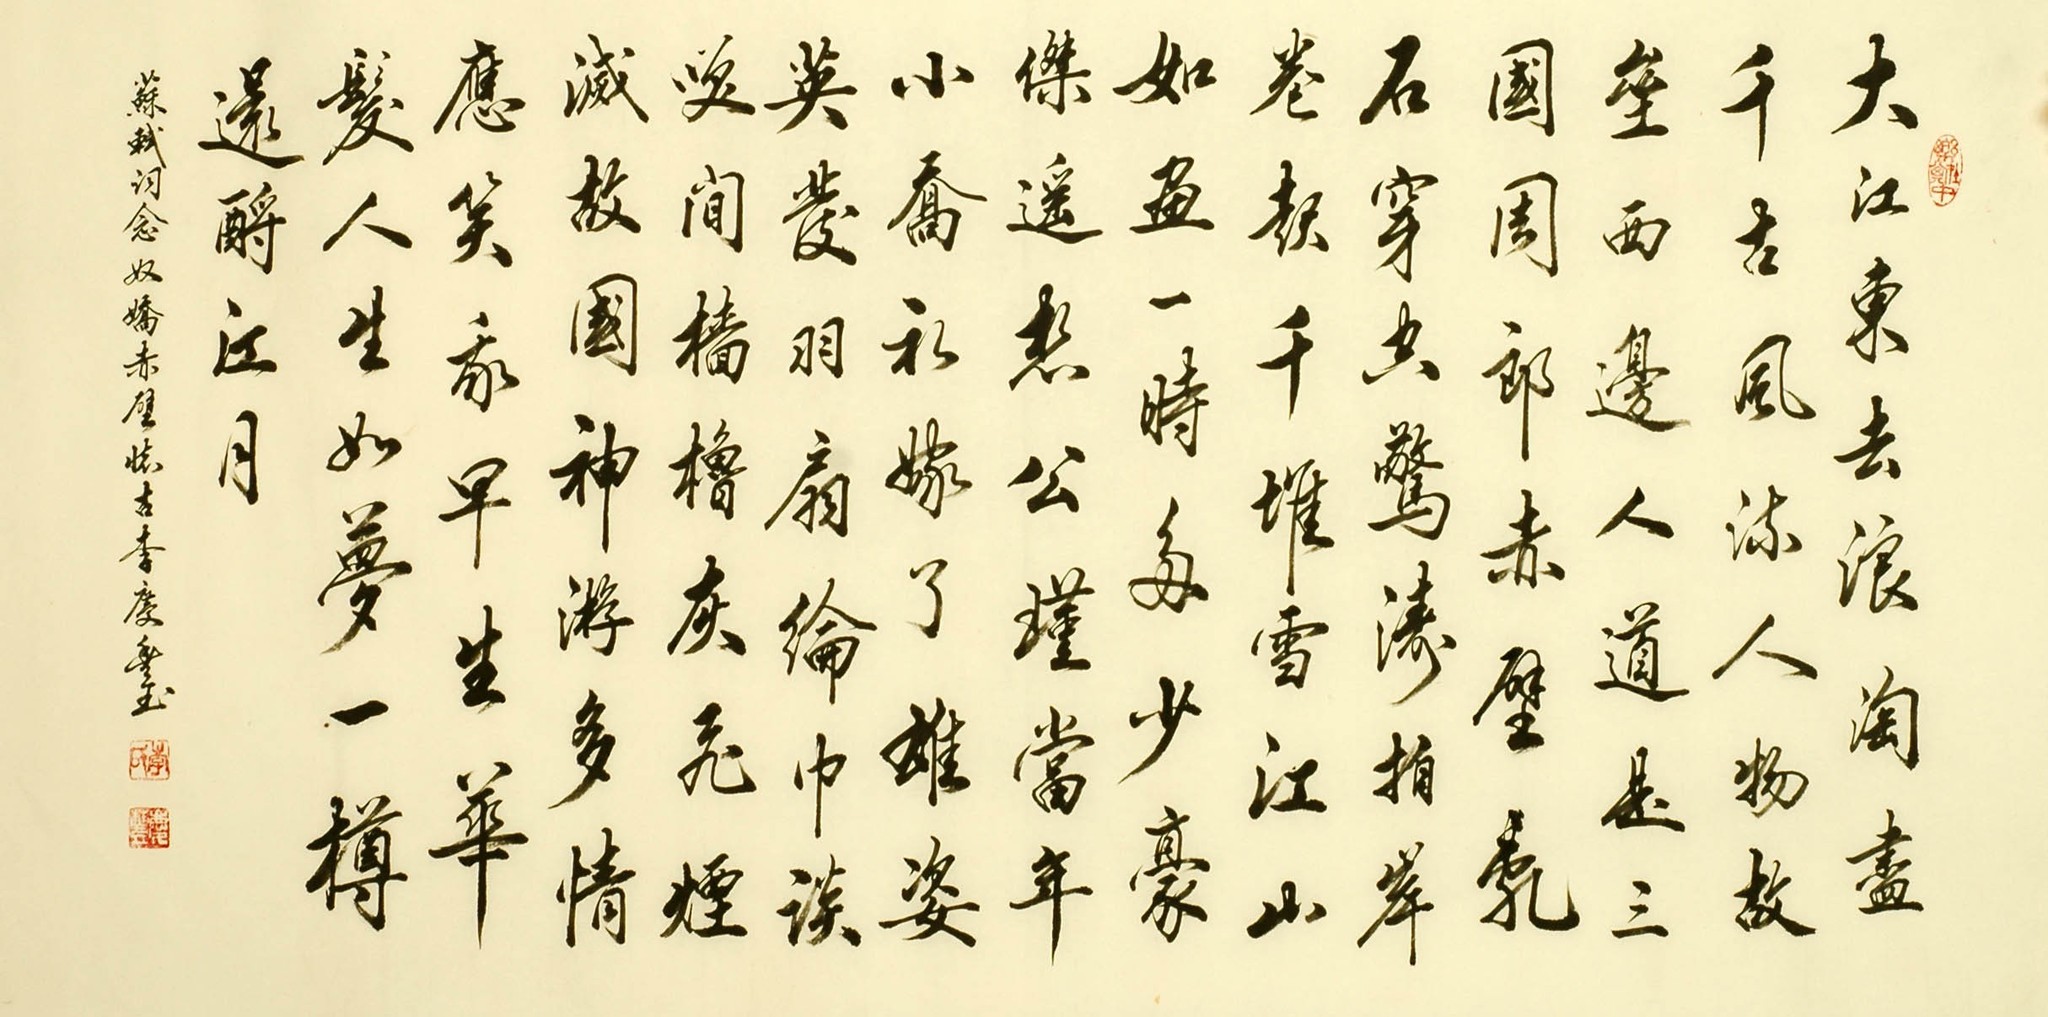 大江東去浪淘盡
千古風流人物故
壘西邊人道是三
國周郎赤壁亂
石穿空驚濤拍岸
卷起千堆雪江山
如畫一時多少豪
傑遥想公瑾當年
小喬初嫁了雄姿
英發羽扇綸巾談
咲間檣櫓灰飛煙
滅故國神游多情
應笑我早生華
髮人生如夢一樽
還酹江月
蘇軾词念奴嬌赤壁懷古李慶